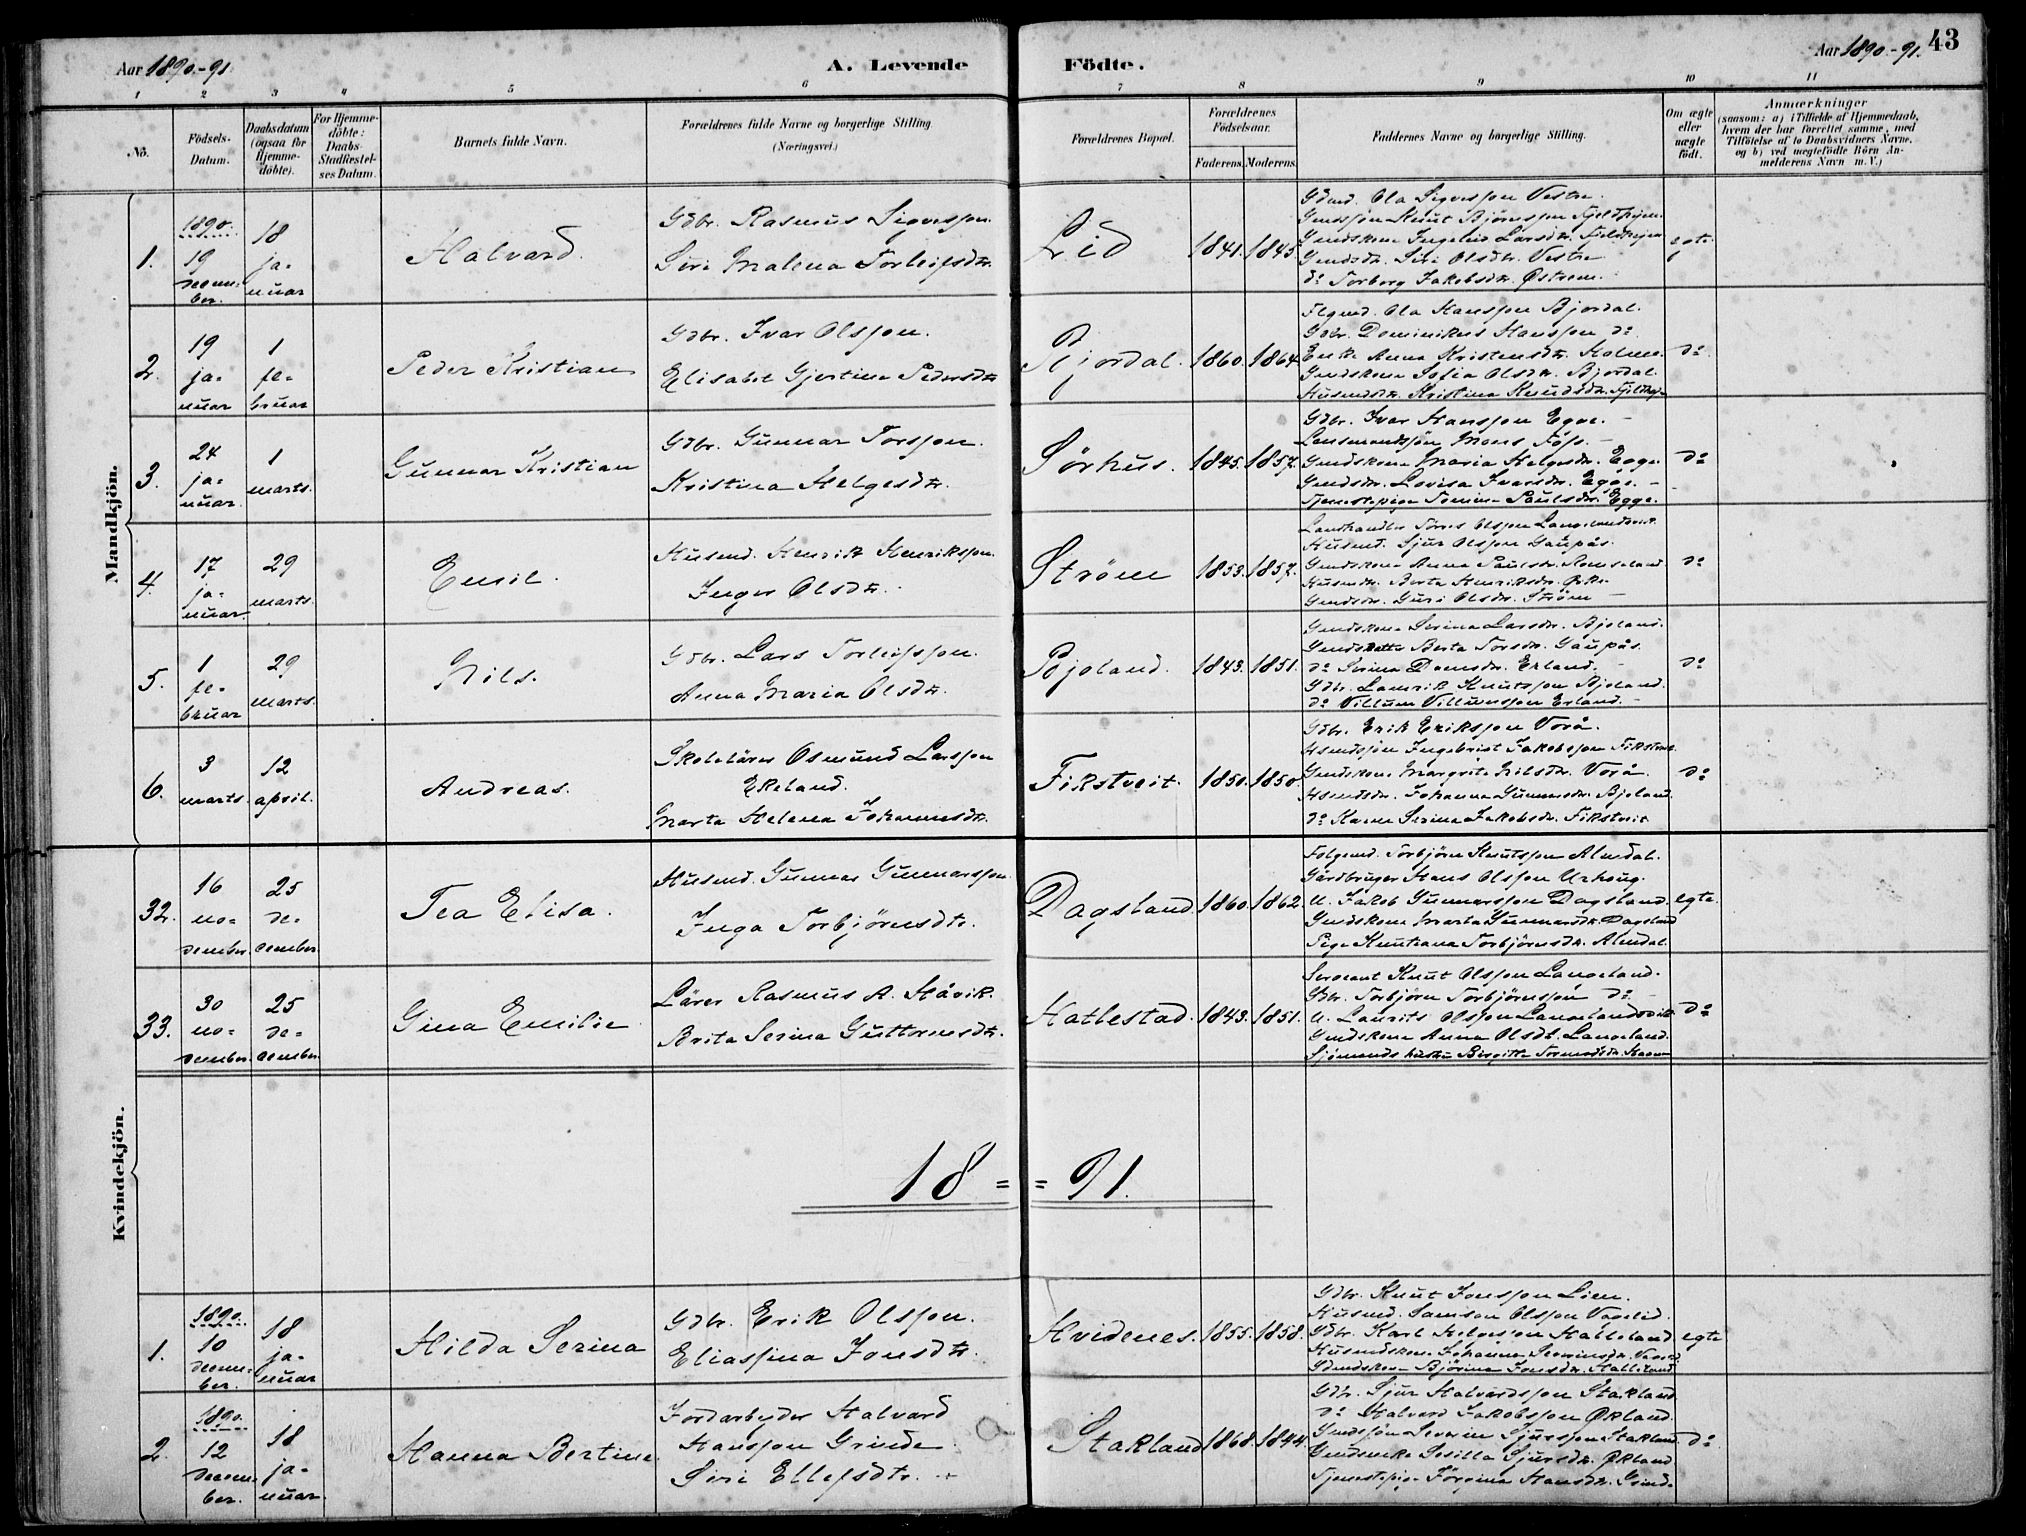 Aar 1890.-91. A. Levende Födte. Aar 1890.-91. 43
1 2 3 4 5 6 7 8 9 10 11
No.
Födsels-Datum.
Daabsdatum (ogsaa for Hjemmedöbte).
For Hjemmedöbte: Daabs-Stadfæstelses Datum.
Barnets fulde Navn.
Forældrenes fulde Navne og borgerlige Stilling. (Næringsvei.)
Forældrenes Bopæl.
Forældrenes Födselsaar.
Faderens. Moderens.
Faddernes Navne og borgerlige Stilling.
Om ægte eller uægte födt.
Anmærkninger
(saasom: a) i Tilfælde af Hjemmedaab, hvem der har forrettet samme, med Tilföielse af to Daabsvidners Navne, og b) ved uægtefödte Börn Anmelderens Navn m. V.)
Mandkjön.
1. 1890. 19 december. 18 januar Halvard.
Gdbr. Rasmus Sigvesson.
Siri Malena Torleifsdtr.
Lid 1841. 1845.
Gdmd. Ola Sigvesson Vestre.
Gmdssøn Knut Bjørnsson Fjeldheim.
Gmdskone Ingeleid Larsdtr. Fjeldheim
Gmdsdtr. Siri Olsdtr. Vestre
do Torborg Jakobsdtr. Østrem.
egte.
2. 19 januar 1 februar Peder Kristian
Gdbr. Ivar Olsson.
Elisabet Gjertine Pedersdtr.
Bjordal. 1860. 1864
Flgmd. Ola Hansson Bjordal.
Gdbr. Dominikus Hansson do
Enk. Anna Kristensdtr. Holme.
Gmdskone Sofia Olsdtr. Bjordal.
Husmdsdtr. Kristina Knudsdtr.
do
3. 24 januar. 1 marts. Gunnar Kristian
Gdbr. Gunnar Torsson.
Kristina Helgesdtr.
Sørhus. 1845. 1857.
Gdbr. Ivar Hansson Egge.
Lensmandssøn Mons
Gmdskone Maria Helgesdtr. Egge.
Gmdsdtr. Lovisa Ivarsdtr. Egge.
Tjenestepige Paulsdtr. Egge.
do
4. 17 januar. 29 marts. Emil.
Husmd. Henrik Henriksson.
Inger Olsdtr.
Strøm 1853. 1857.
Landhandler Olsson
Husmd. Sjur Olsson Gaupås.
Gmdskone Anna Paulsdtr.
Husmdtr. Berta Henriksdtr.
Gmdsdtr. Guri Olsdtr. Strøm
do
5. 1 februar 29 marts. Nils.
Gdbr. Lars Torleifsson.
Anna Maria Olsdtr.
Bjoland. 1843. 1851.
Gmdskone Serina Larsdtr. Bjoland.
Gmdsdatter Berta Torsdtr. Gaupås.
do Serina Erland.
Gdbr. Lamrik Knutsson Bjoland.
do Villum Villumsson Erland.
do
6. 3 marts. 12 april. Andreas.
Skolelärer Osmund Larsson
Ekeland.
Marta Helena Johannesdtr.
Fikstveit. 1850. 1850.
Gdbr. Erik Eriksson Vorå.
Gmdssøn Ingebrigt Jakobsson Fikstveit.
Gmdskone Margrete Nilsdtr. Vorå.
Gmdsdtr. Johanna Gunnarsdtr. Bjoland.
do Karen Serina Jakobsdtr. Fikstveit
do
Kvindekjön.
32. 16 november 25 december Tea Elisa.
Husmd. Gunnar Gunnarsson
Inga Torbjörnsdtr.
Dagsland 1860. 1862.
Folgemd. Torbjörn Knutsson Almdal.
Gårdbruger Hans Olsson
U. Jakob Gunnarsson Dagsland.
Gmdskone Marta Gunnarsdtr. Dagsland
Pige Knutiana Torbjörnsdtr. Almdal
egte.
33. 30 november. 25 december. Gina Emilie
Lärer Rasmus A. Håvik.
Brita Serina Guttormsdtr.
Hatlestad. 1843. 1851.
Sergeant Knut Olsson Langeland.
Gdbr. Torbjörn Torbjörnsson do
U. Laurits Olsson Langelandsvik
Gmdskone Anna Olsdt. Langeland.
Sjømands hustru Birgitte
do
18 = = 91.
1. 1890. 10 december. 18 januar Hilda Serina
Gdbr. Erik Olsson.
Eliassina Jonsdtr.
Hvidenes. 1855. 1858.
Gdbr. Knut Jonsson Lien.
Husmd. Samson Olsson
Gdbr. Karl Helgesson Halleland
Husmdskone Johanne
Gmdskone Björine Jonsdtr. Halleland
egte
2. 1890. 12 december. 18 januar Hanna Bertine.
Jordarbyder Halvard
Hansson Grinde.
Siri Ellefsdtr.
Stakland 1868. 1844.
Gdbr. Sjur Halvardsson Stakland
do Halvard Jakobsson Økland.
Gmdssøn Severin Sjursson Stakland
Sjursdtr. Økland
Tjenestepige Jørgine Hansdtr. Grinde
do